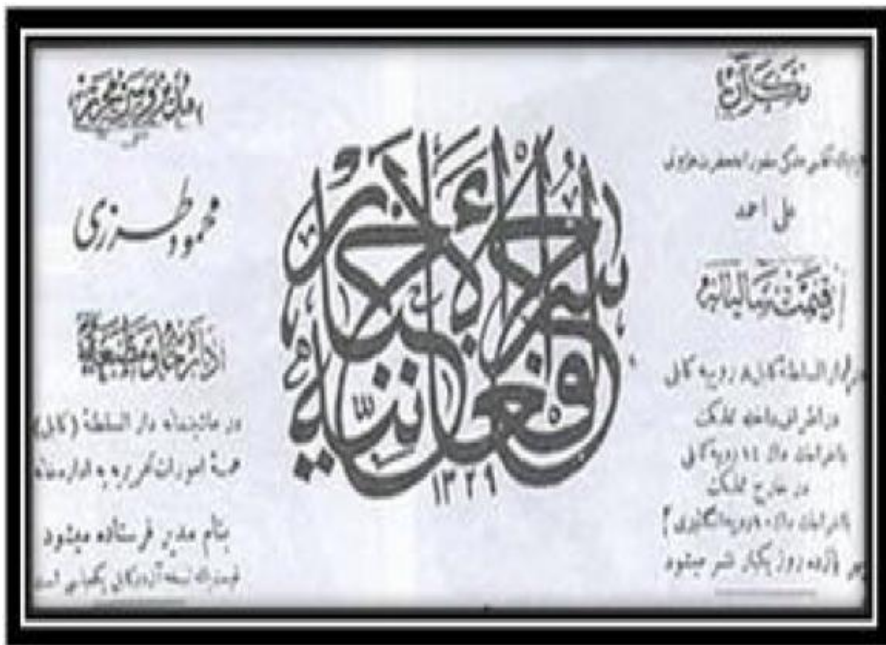 نگران
علی احمد
قیمت سالیانه
در دار السلطنهٔ کابل ۸ روپیه کابلی
در اطراف داخله مملکت
۱۴ روپیه کابلی
در خارج مملکت
روپیه انگلیزی
پانزده روز یکبار نشر میشود
سراج الأخبار
افغانیه
۱۳۲۹
مدیر و سر محرر
محمود طرزی
اداره خانه و مطبعه
در ماشینخانه دار السلطنهٔ (کابل)
همهٔ امورات تحریریه به اداره خانه
بنام مدیر فرستاده میشود